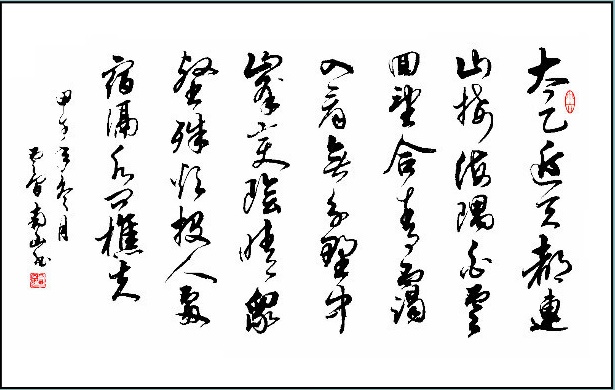 太乙近天都連
山接海隅白雲
回望合青靄
入看無分野中
峯變陰晴眾
壑殊欲投人處
宿隔水問樵夫
甲午冬月
南山書